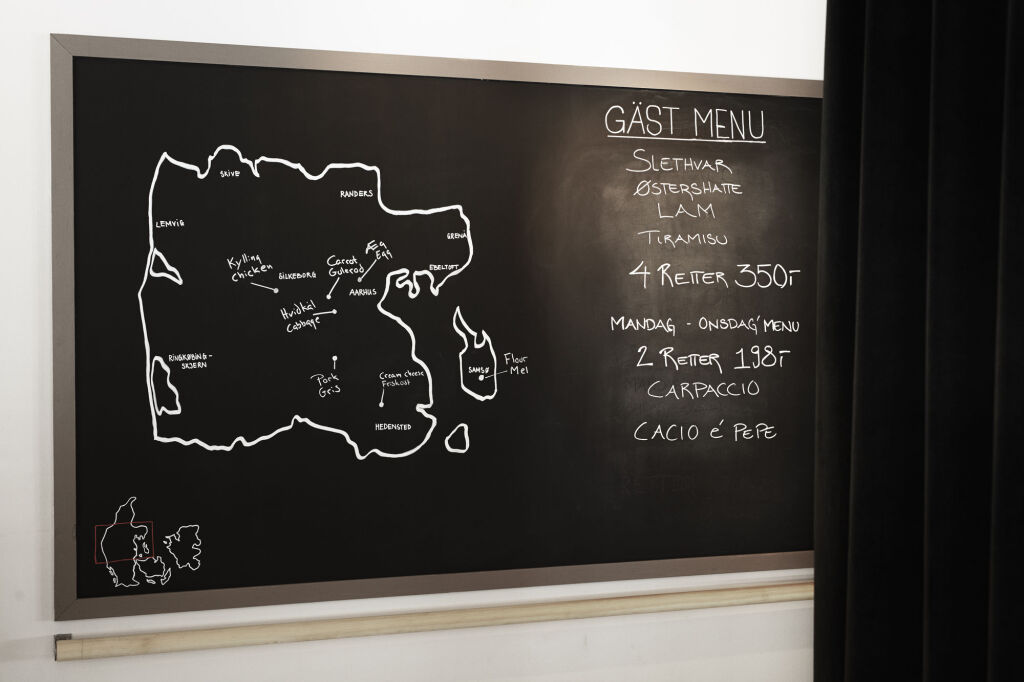 GÄST MENU
SLETHVAR
ØSTERSHATTE
LAM
TIRAMISU
4 RETTER 350,-
MANDAG - ONSDAG'MENU
2 RETTER 198,-
CARPACCIO
CACIO é PEPE
SKIVE
RANDERS
LEMVIG
GRENA
Kylling
chicken
SILKEBORG
Carrot
Gulerod
Æg
Egg
EBELTOFT
AARHUS
Hvidkål
Cabbage
RINGKØBING-
SKJERN
Pork
Gris
Cream cheese
Friskost
SAMSØ
Flour
Mel
HEDENSTED